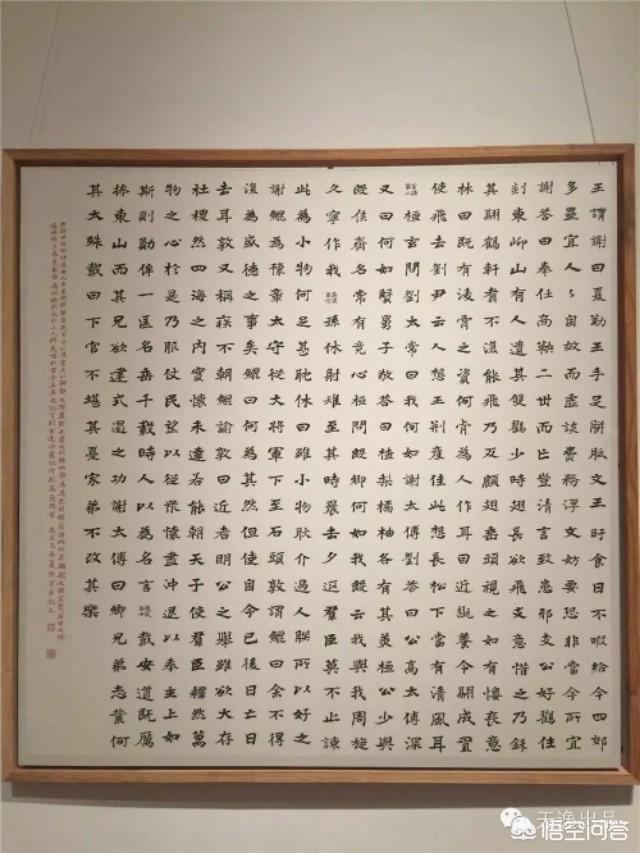 王謂謝曰夏勤王手足胼胝文王旰食日不暇給今四郊
多壘宜人〻自效而虛談費務浮文妨要恐非當今所宜
謝答曰秦任商鞅二世而亡豈清言致患邪支公好鶴住
剡東岇山有人遺其雙鶴少時翅長欲飛支意惜之乃鎩
其翮鶴軒翥不復能飛乃反顧翅垂頭視之如有懊喪意
林曰既有淩霄之資何肯為人作耳目近翫養令翮成置
使飛去劉尹云人想王荊產佳此想長松下當有清風耳
桓玄問劉太常曰我何如謝太傅劉答曰公高太傅深
又曰何如賢舅子敬答曰樝梨橘柚各有其美桓公少與
殷侯齊名常有競心桓問殷卿何如我殷云我與我周旋
久寧作我孫休射雉至其時晨去夕返羣臣莫不止諫
此為小物何足甚躭休曰雖小物耿介過人朕所以好之
謝鯤為豫章太守從大將軍下至石頭敦謂鯤曰余不得
復為盛德之事矣鯤曰何為其然但使自今已後日亡日
去耳敦又稱疾不朝鯤諭敦曰近者明公之舉雖欲大存
社稷然四海之內實懷未達若能朝天子使羣臣釋然萬
物之心於是乃服仗民望以從衆懷盡沖退以奉主上如
斯則勛侔一匡名垂千載時人以為名言戴安道既厲
操東山而其兄欲建式遏之功謝太傅曰卿兄弟志業何
其太殊戴曰下官不堪其憂家弟不改其樂
天逸出品
悟空问答